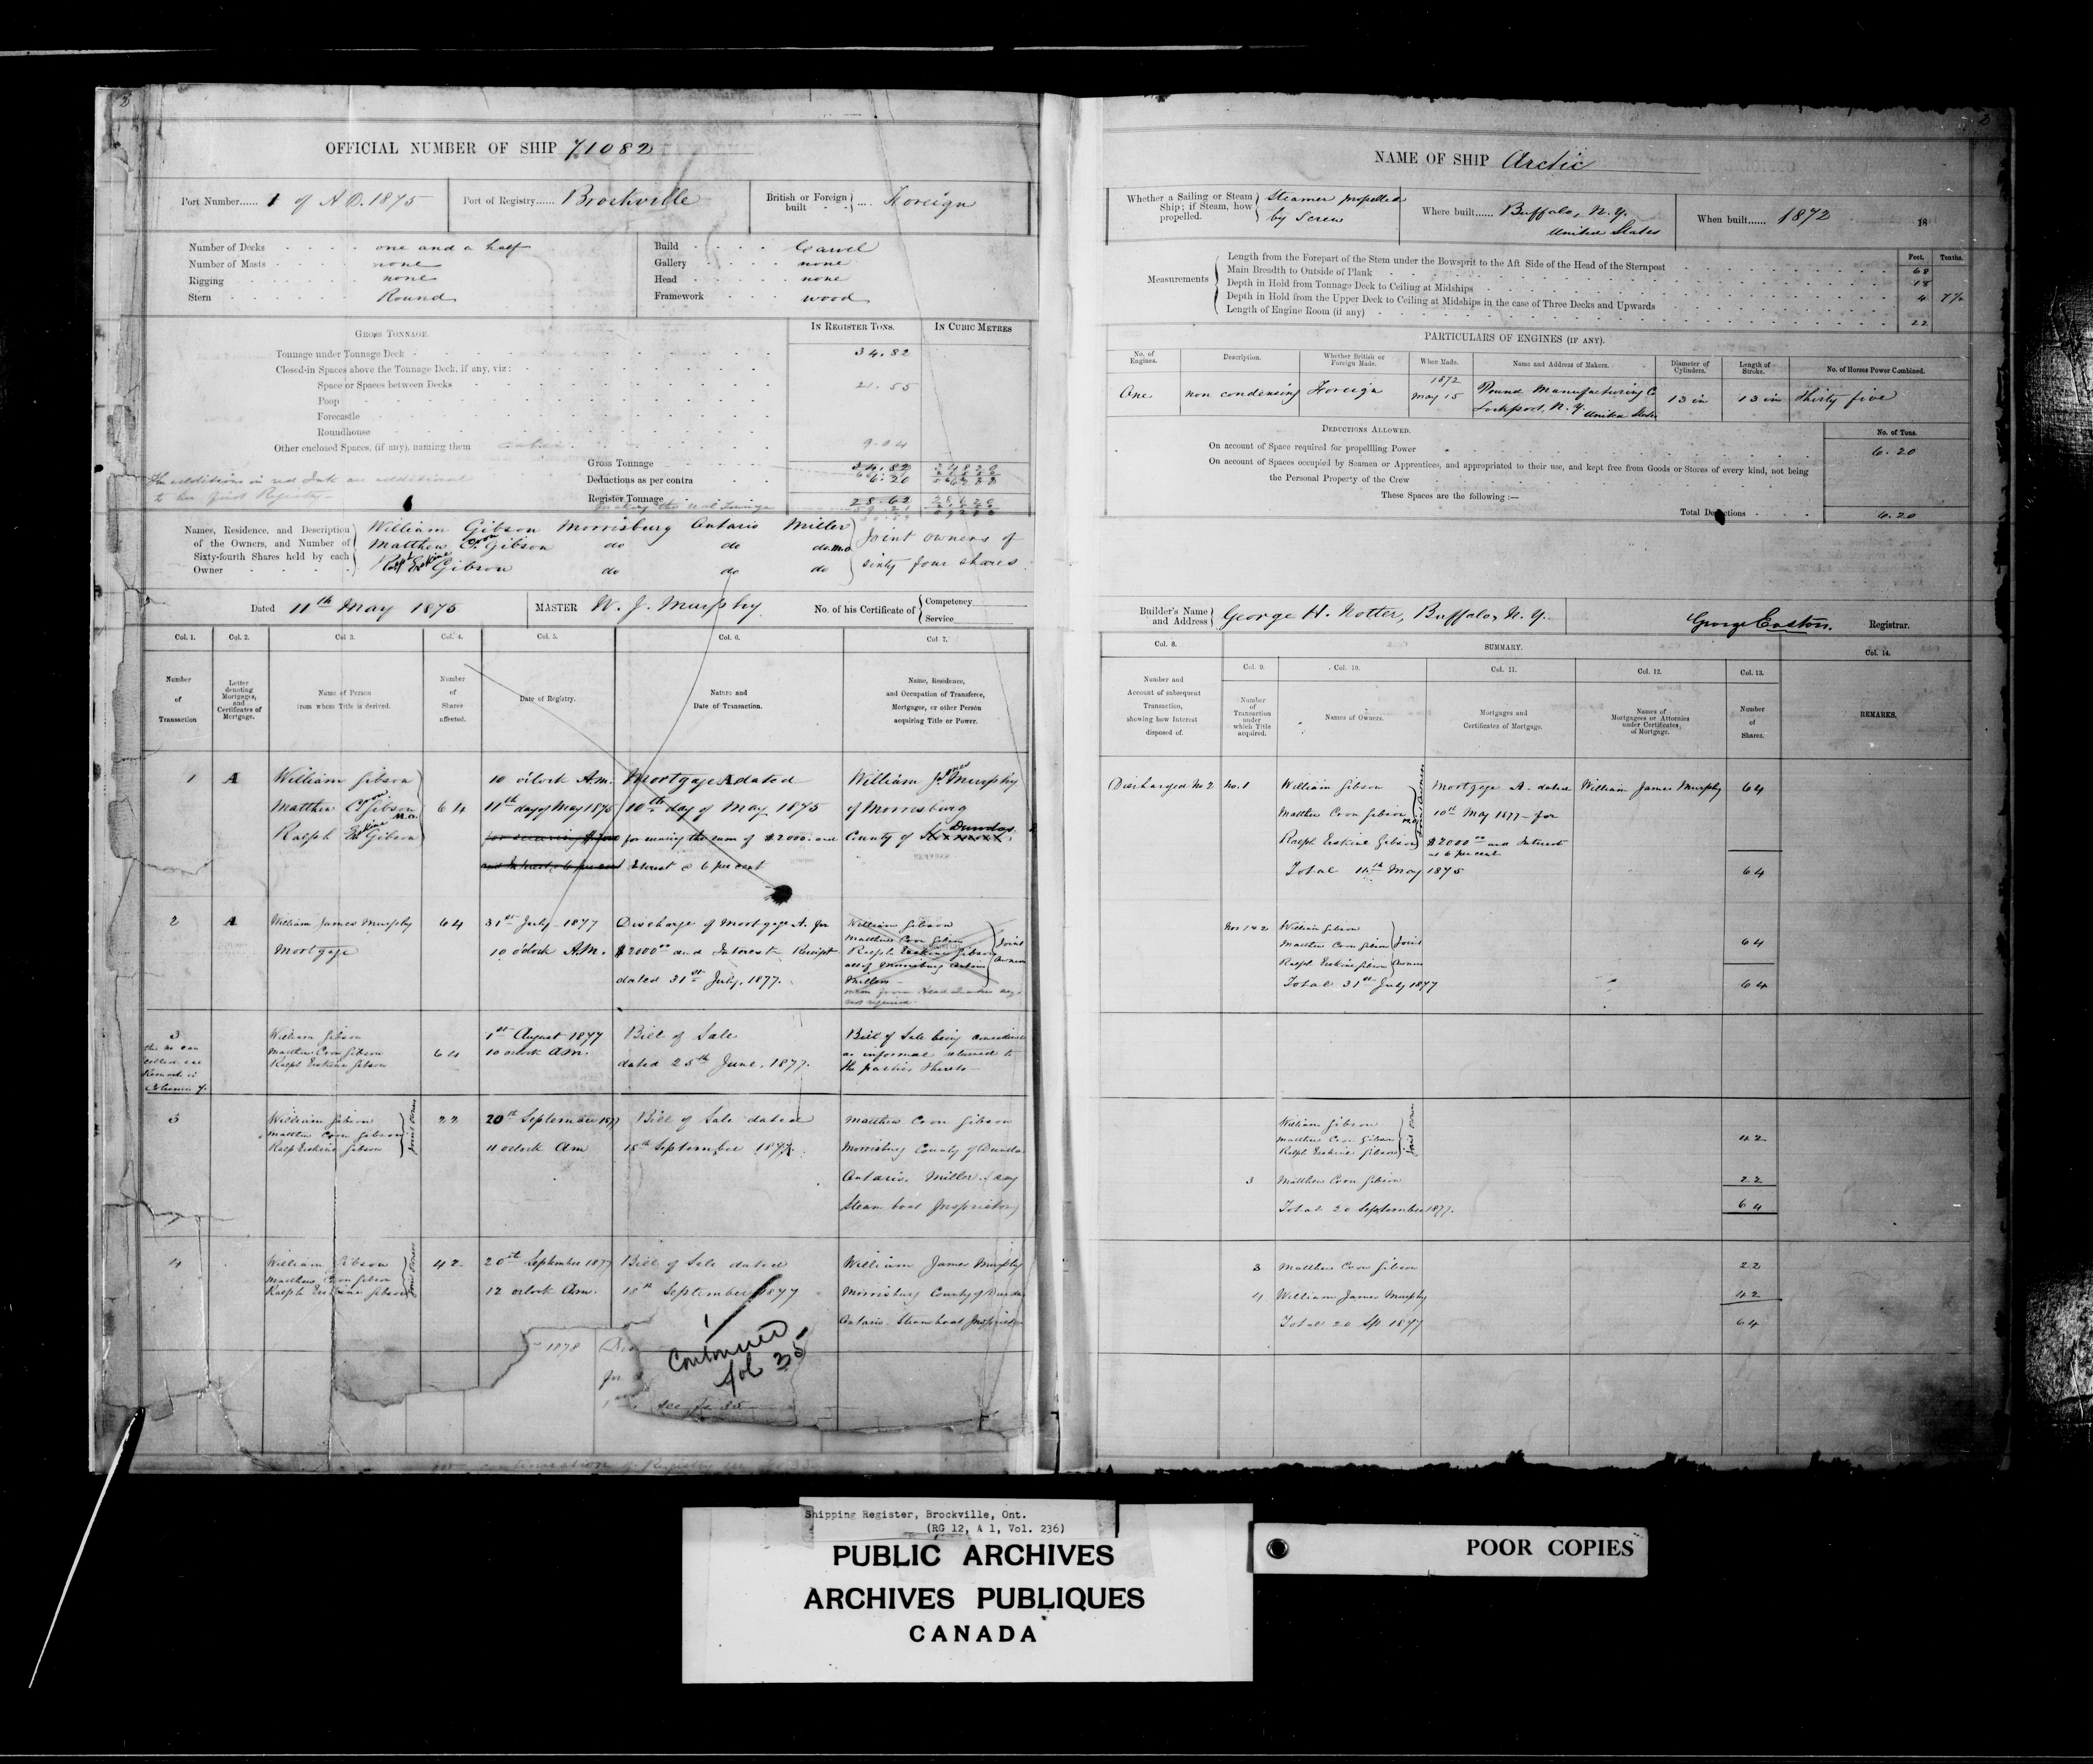 2
OFFICIAL NUMBER OF SHIP 71082
Port Number...... 1 of A.D. 1875
Port of Registry...... Brockville
British or Foreign built .... Foreign
Number of Decks one and a half
Number of Masts none
Rigging none
Stern Round
Build Carvel
Gallery none
Head none
Framework wood
GROSS TONNAGE.
IN REGISTER TONS.
IN CUBIC METRES
Tonnage under Tonnage Deck 34.82
Closed-in Spaces above the Tonnage Deck, if any, viz:
Space or Spaces between Decks 21.55
Poop
Forecastle
Roundhouse
Other enclosed Spaces, (if any), naming them 9.04
Gross Tonnage 34.82
Deductions as per contra 6.20
Register Tonnage 28.62
The additions in red Ink are additional
to her first Registry
Names, Residence, and Description of the Owners, and Number of Sixty-fourth Shares held by each Owner
William Gibson Morrisburg Ontario Miller
Matthew Coon Gibson do do do
Gibson do do do
Joint owners of
sixty four shares
Dated 11th May 1875
MASTER W. J. Murphy
No. of his Certificate of Competency
Service
Col. 1. Col. 2. Col. 3. Col. 4. Col. 5. Col. 6. Col. 7.
Number of Transaction
Letter denoting Mortgages, and Certificates of Mortgage.
Name of Person from whom Title is derived.
Number of Shares affected.
Date of Registry.
Nature and Date of Transaction.
Name, Residence, and Occupation of Transferee, Mortgagee, or other Person acquiring Title or Power.
1 A William Gibson 10 o'clock A.M. Mortgage A dated William James Murphy
Matthew Coon Gibson M.O. 64 11th day of May 1875 10th day of May 1875 of Morrisburg
Ralph Erskine Gibson for securing the sum of $2000. and County of Dundas
Interest @ 6 per cent
2 A William James Murphy 64 31st July 1877 Discharge of Mortgage A. for William Gibson
Mortgage 10 o'clock A.M. $2000 00 and Interest Receipt Matthew Coon Gibson
dated 31st July, 1877. Ralph Erskine Gibson
all of Morrisburg Ontario
Millers
Joint Owners
not required
3 William Gibson 1st August 1877 Bill of Sale Bill of Sale being considered
Matthew Coon Gibson 64 10 o'clock A.M. as informal returned to
Ralph Erskine Gibson dated 25th June, 1877. the parties thereto
Column 7.
3 William Gibson 22 20th September 1877 Bill of Sale dated Matthew Coon Gibson
Matthew Coon Gibson 11 o'clock Am 18th September 1877. Morrisburg County of Dundas
Ralph Erskine Gibson Ontario. Miller
Joint Owners
Steam boat Proprietor
4 William Gibson 42 20th September 1877 Bill of Sale dated William James Murphy
Matthew Coon Gibson 12 o'clock Am. 18th September 1877 Morrisburg County of Dundas
Ralph Erskine Gibson Ontario. Steam boat Proprietor
Joint Owners
1878
Continued
fol 35
see fo 35
continuation of Registry see
2
NAME OF SHIP Arctic
Whether a Sailing or Steam Ship; if Steam, how propelled. Steamer propelled by Screw
Where built...... Buffalo, N.Y. United States
When built...... 1872 18
Measurements
Feet. Tenths.
Length from the Forepart of the Stem under the Bowsprit to the Aft Side of the Head of the Sternpost 68
Main Breadth to Outside of Plank 18
Depth in Hold from Tonnage Deck to Ceiling at Midships 4
Depth in Hold from the Upper Deck to Ceiling at Midships in the case of Three Decks and Upwards
Length of Engine Room (if any) 22
PARTICULARS OF ENGINES (IF ANY).
No. of Engines. Description. Whether British or Foreign Made. When Made. Name and Address of Makers. Diameter of Cylinders. Length of Stroke. No. of Horses Power Combined.
One non condensing Foreign 1872 May 15 Pound Manufacturing Co Lockport, N.Y. United States 13 in 13 in Thirty five
DEDUCTIONS ALLOWED.
No. of Tons.
On account of Space required for propelling Power 6.20
On account of Spaces occupied by Seamen or Apprentices, and appropriated to their use, and kept free from Goods or Stores of every kind, not being
the Personal Property of the Crew
These Spaces are the following:—
Total Deductions 6.20
Builder's Name and Address George H. Notter, Buffalo, N.Y.
George Easton. Registrar.
Col. 8. SUMMARY. Col. 14.
Col. 9. Col. 10. Col. 11. Col. 12. Col. 13.
Number and Account of subsequent Transaction, showing how Interest disposed of.
Number of Transaction under which Title acquired.
Names of Owners.
Mortgages and Certificates of Mortgage.
Names of Mortgagees or Attornies under Certificates, of Mortgage.
Number of Shares.
REMARKS.
Discharged No 2 No. 1 William Gibson Mortgage A. dated William James Murphy 64
Matthew Coon Gibson 10th May 1877 for
Ralph Erskine Gibson $2000 00 and Interest
at 6 per cent
Joint Owners
Total 11th May 1875 64
Nos 1 & 2 William Gibson
Matthew Coon Gibson Joint 64
Ralph Erskine Gibson Owners
Total 31st July 1877 64
William Gibson
Matthew Coon Gibson 42
Ralph Erskine Gibson
Joint Owners
3 Matthew Coon Gibson 22
Total 20 September 1877. 64
3 Matthew Coon Gibson 22
4 William James Murphy 42
Total 20 Sp 1877 64
Shipping Register, Brockville, Ont.
(RG 12, A 1, Vol. 236)
PUBLIC ARCHIVES
ARCHIVES PUBLIQUES
CANADA
POOR COPIES